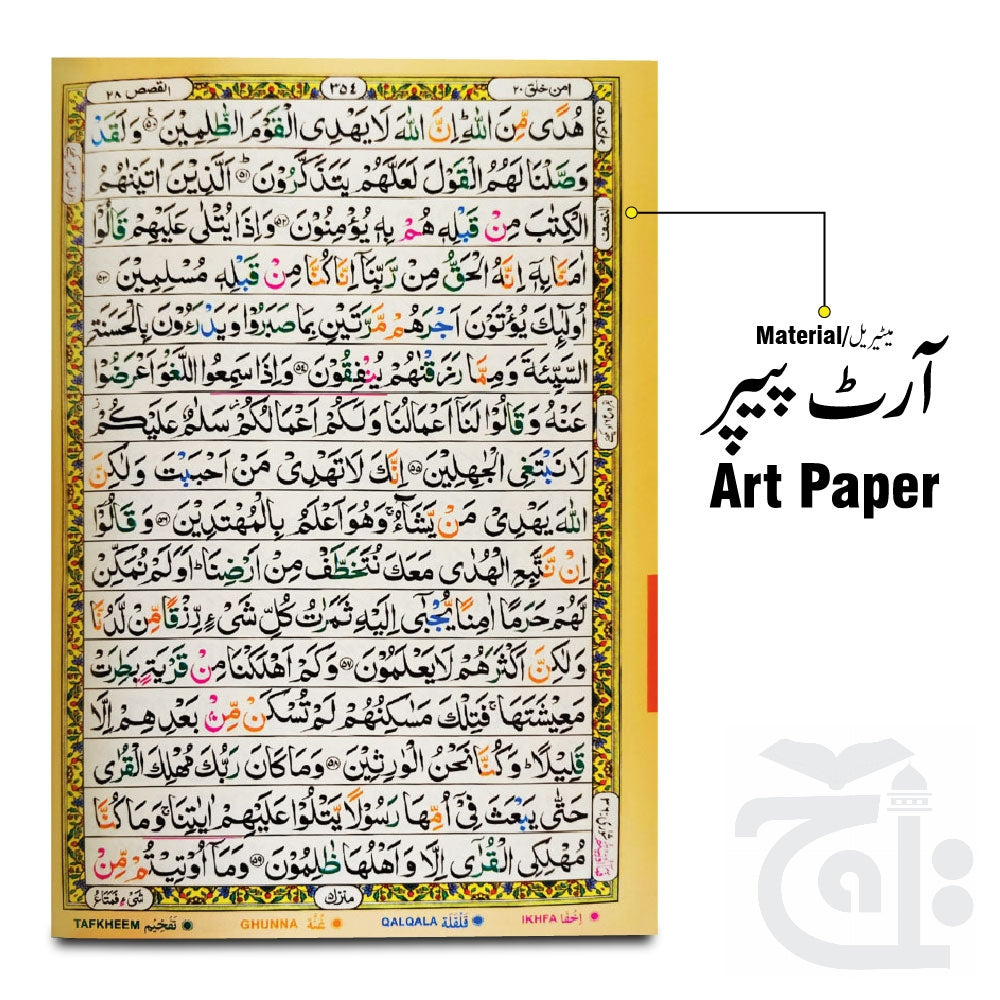 امن خلق ٢٠
٣٥٤
القصص ٢٨
هُدًى مِّنَ اللّٰهِ ؕ اِنَّ اللّٰهَ لَا يَهْدِى الْقَوْمَ الظّٰلِمِيْنَ ۝٥٠ وَلَقَدْ
وَصَّلْنَا لَهُمُ الْقَوْلَ لَعَلَّهُمْ يَتَذَكَّرُوْنَ ۝٥١ اَلَّذِيْنَ اٰتَيْنٰهُمُ
الْكِتٰبَ مِنْ قَبْلِهٖ هُمْ بِهٖ يُؤْمِنُوْنَ ۝٥٢ وَاِذَا يُتْلٰى عَلَيْهِمْ قَالُوْۤا
اٰمَنَّا بِهٖۤ اِنَّهُ الْحَقُّ مِنْ رَّبِّنَاۤ اِنَّا كُنَّا مِنْ قَبْلِهٖ مُسْلِمِيْنَ ۝٥٣
اُولٰٓئِكَ يُؤْتَوْنَ اَجْرَهُمْ مَّرَّتَيْنِ بِمَا صَبَرُوْا وَيَدْرَءُوْنَ بِالْحَسَنَةِ
السَّيِّئَةَ وَمِمَّا رَزَقْنٰهُمْ يُنْفِقُوْنَ ۝٥٤ وَاِذَا سَمِعُوا اللَّغْوَ اَعْرَضُوْا
عَنْهُ وَقَالُوْا لَنَاۤ اَعْمَالُنَا وَلَكُمْ اَعْمَالُكُمْ سَلٰمٌ عَلَيْكُمْ
لَا نَبْتَغِى الْجٰهِلِيْنَ ۝٥٥ اِنَّكَ لَا تَهْدِىْ مَنْ اَحْبَبْتَ وَلٰكِنَّ
اللّٰهَ يَهْدِىْ مَنْ يَّشَآءُ ۚ وَهُوَ اَعْلَمُ بِالْمُهْتَدِيْنَ ۝٥٦ وَقَالُوْۤا
اِنْ نَّتَّبِعِ الْهُدٰى مَعَكَ نُتَخَطَّفْ مِنْ اَرْضِنَا ؕ اَوَلَمْ نُمَكِّنْ
لَّهُمْ حَرَمًا اٰمِنًا يُّجْبٰۤى اِلَيْهِ ثَمَرٰتُ كُلِّ شَىْءٍ رِّزْقًا مِّنْ لَّدُنَّا
وَلٰكِنَّ اَكْثَرَهُمْ لَا يَعْلَمُوْنَ ۝٥٧ وَكَمْ اَهْلَكْنَا مِنْ قَرْيَةٍۭ بَطِرَتْ
مَعِيْشَتَهَا ۚ فَتِلْكَ مَسٰكِنُهُمْ لَمْ تُسْكَنْ مِّنْۢ بَعْدِهِمْ اِلَّا
قَلِيْلًا ؕ وَكُنَّا نَحْنُ الْوٰرِثِيْنَ ۝٥٨ وَمَا كَانَ رَبُّكَ مُهْلِكَ الْقُرٰى
حَتّٰى يَبْعَثَ فِىْۤ اُمِّهَا رَسُوْلًا يَّتْلُوْا عَلَيْهِمْ اٰيٰتِنَا ۚ وَمَا كُنَّا
مُهْلِكِى الْقُرٰٓى اِلَّا وَاَهْلُهَا ظٰلِمُوْنَ ۝٥٩ وَمَاۤ اُوْتِيْتُمْ مِّنْ
النصف
منزل ٥
شَىْءٍ فَمَتَاعُ
TAFKHEEM تَفْخِيْم
GHUNNA غُنَّة
QALQALA قَلْقَلَة
IKHFA اِخْفَا
Material/میٹیریل
آرٹ پیپر
Art Paper